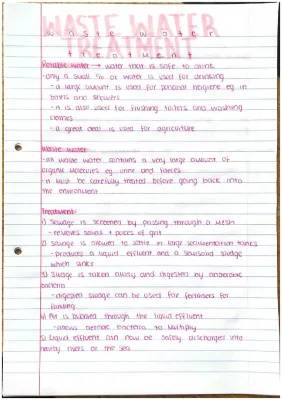 WASTE WATER
waste water
TREATMENT
treatment
Potable water → water that is safe to drink
-only a small % of water is used for drinking
-a large amount is used for personal hygiene eg in
baths and showers
-it is also used for flushing toilets and washing
clothes
-a great deal is used for agriculture
Waste water
-all waste water contains a very large amount of
organic molecules eg urine and faeces
-it must be carefully treated before going back into
the environment
Treatment
1) Sewage is screened by passing through a mesh
-removes solids + pieces of grit
2) Sewage is allowed to settle in large sedimentation tanks
-produces a liquid effluent and a semisolid sludge
which sinks
3) Sludge is taken away and digested by anaerobic
bacteria
-digested sludge can be used for fertilisers for
farming
4) Air is bubbled through the liquid effluent
-allows aerobic bacteria to multiply
5) Liquid effluent can now be safely discharged into
nearby rivers or the sea